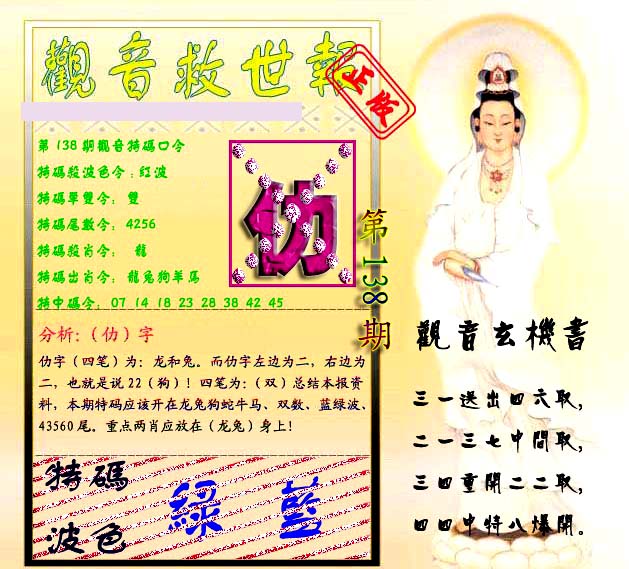 觀音救世報
正版
第138期觀音特碼口令
特碼殺波色令：紅波
特碼單雙令： 雙
特碼尾數令： 4256
特碼殺肖令： 龍
特碼出肖令： 龍兔狗羊馬
特中碼令： 07 14 18 23 28 38 42 45
仂
第138期
分析：（仂）字
仂字（四笔）为：龙和兔。而仂字左边为二，右边为
二，也就是说22（狗）！四笔为：（双）总结本报资
料，本期特码应该开在龙兔狗蛇牛马、双数、蓝绿波、
43560尾。重点两肖应放在（龙兔）身上！
特碼
波色
綠 藍
觀音玄機書
三一送出四六取，
二一三七中間取，
三四重開二二取，
四四中特八爆開。